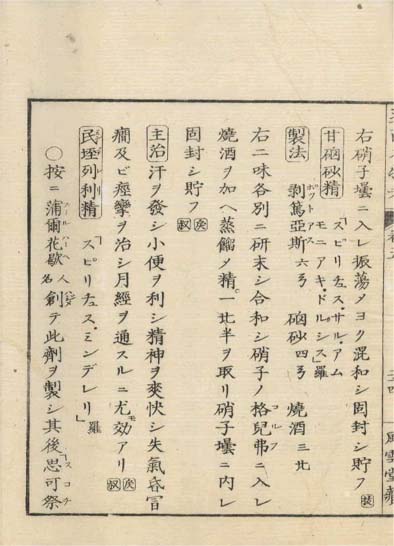 右硝子壜ニ入レ振蕩メヨク混和シ固封シ貯フ
甘硇砂精 「スピリチュス、サル、アムモニアキ、ドルシス」羅
製法 剥篤亞斯六ヲ 硇砂四ヲ 燒酒三
右二味各別ニ研末シ合和シ硝子ノ格兒弗ニ入レ
燒酒ヲ加ヘ蒸餾メ精一 半ヲ取リ硝子壜ニ内レ
固封シ貯フ
主治 汗ヲ發シ小便ヲ利シ精神ヲ爽快シ失氣昏冒
癎及ビ痙攣ヲ治シ月經ヲ通スルニ尤モ效アリ
民垤列利精 「スピリチュス、ミンデレリ」羅
○按ニ蒲爾花歇人名創テ此劑ヲ製シ其後思可祭